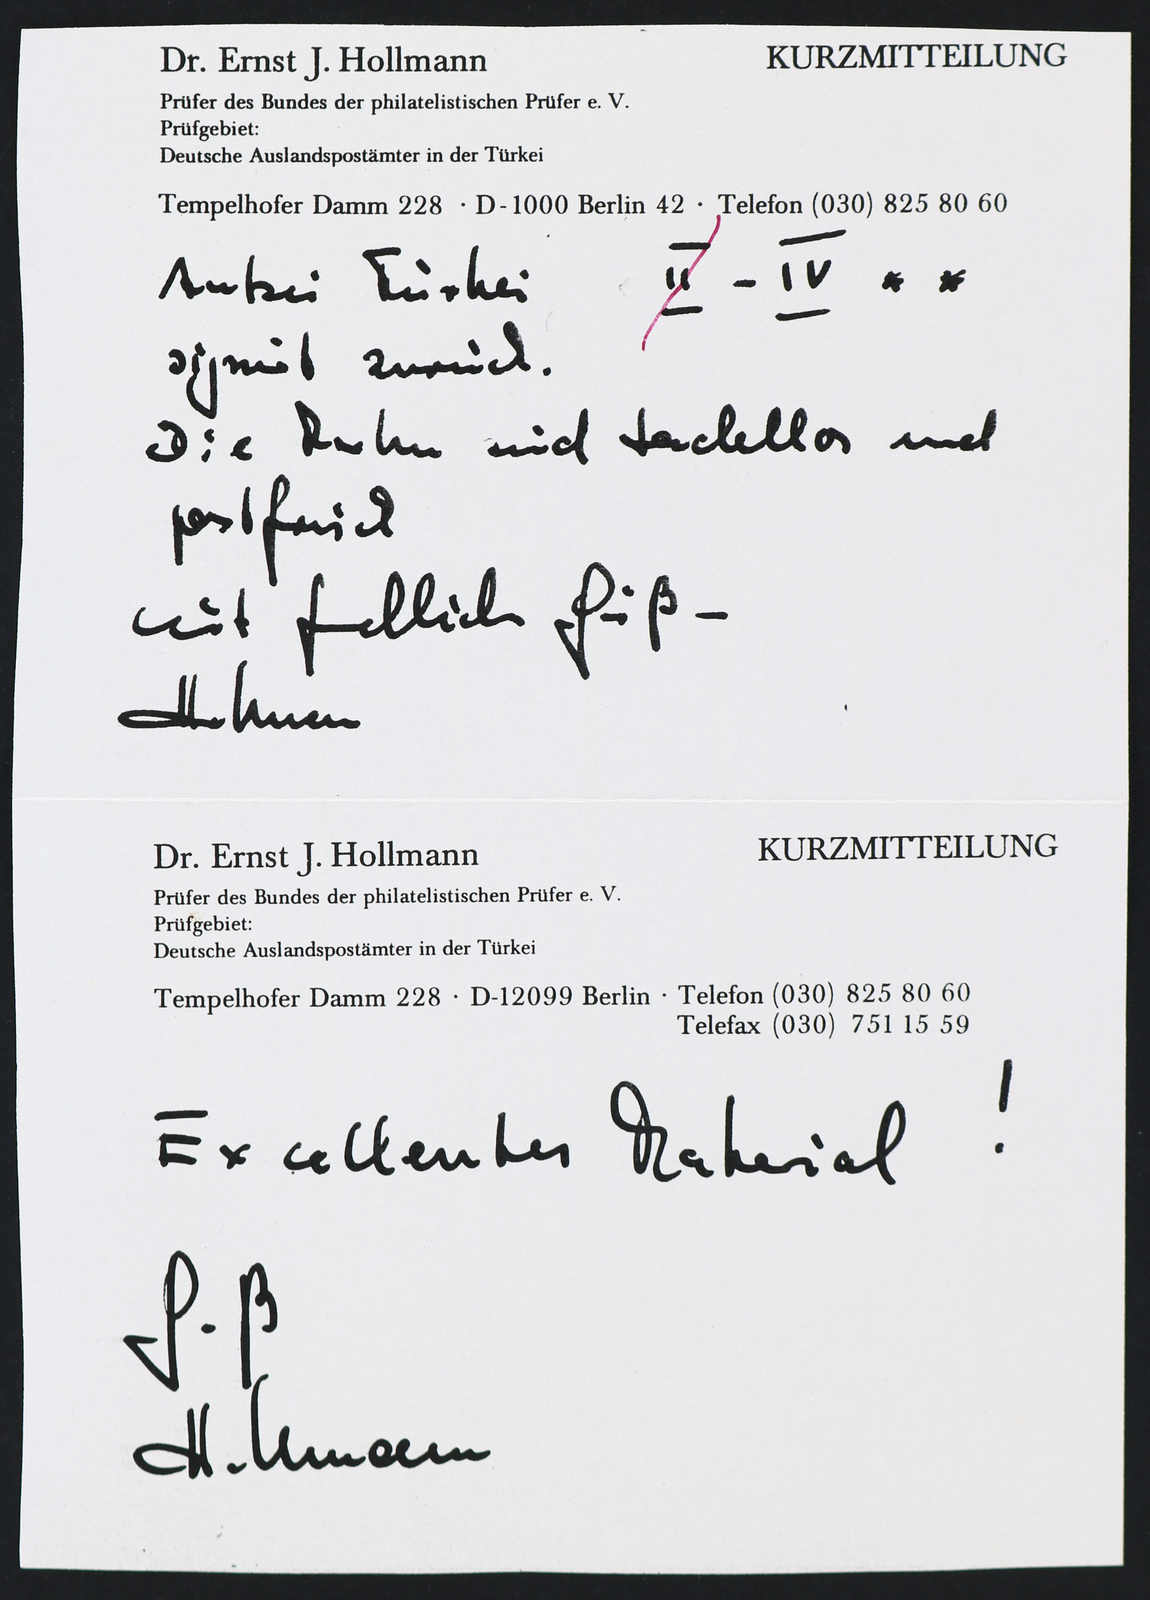 Dr. Ernst J. Hollmann
KURZMITTEILUNG
Prüfer des Bundes der philatelistischen Prüfer e. V.
Prüfgebiet:
Deutsche Auslandspostämter in der Türkei
Tempelhofer Damm 228 · D-1000 Berlin 42 · Telefon (030) 825 80 60
Türkei II - IV * *
signiert zurück.
Die sind tadellos und
postfrisch
mit Gruß -
Hollmann
Dr. Ernst J. Hollmann
KURZMITTEILUNG
Prüfer des Bundes der philatelistischen Prüfer e. V.
Prüfgebiet:
Deutsche Auslandspostämter in der Türkei
Tempelhofer Damm 228 · D-12099 Berlin · Telefon (030) 825 80 60
Telefax (030) 751 15 59
Excellentes Material !
Gruß
Hollmann